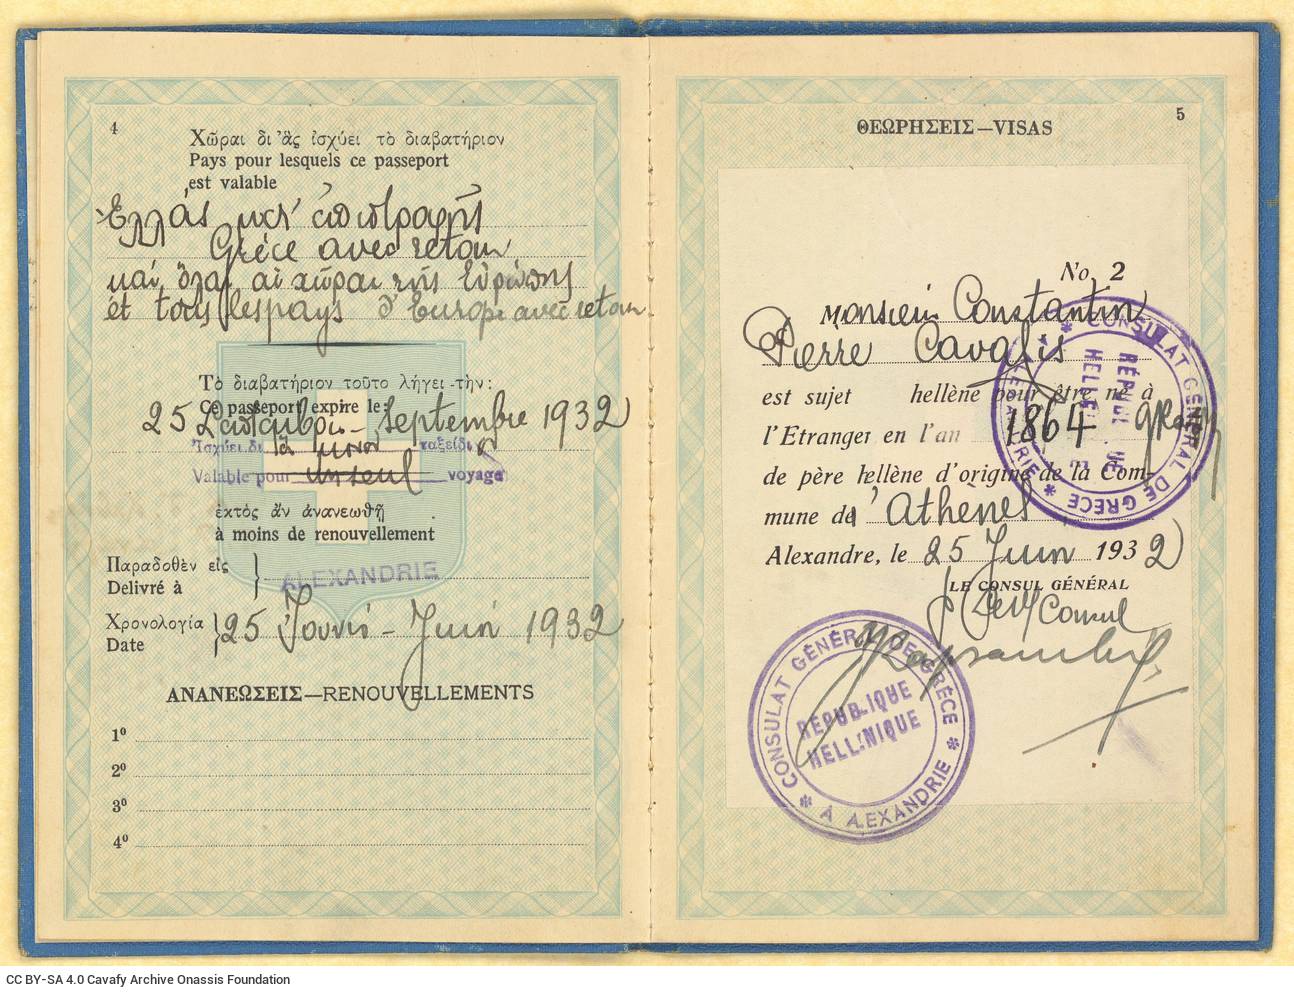 4
Χῶραι δι' ἃς ἰσχύει τὸ διαβατήριον
Pays pour lesquels ce passeport
est valable
Ἑλλάς μετ' ἐπιστροφῆς
Grèce avec retour
καὶ ὅλαι αἱ χῶραι τῆς Εὐρώπης
et tous les pays d'Europe avec retour
Τὸ διαβατήριον τοῦτο λήγει τὴν:
Ce passeport expire le
25 Σεπτεμβρίου - Septembre 1932
Ἰσχύει διὰ ἓν μόνον ταξείδιον
Valable pour un seul voyage
ἐκτὸς ἂν ἀνανεωθῇ
à moins de renouvellement
Παραδοθὲν εἰς
Delivré à
ALEXANDRIE
Χρονολογία
Date
25 Ἰουνίου - Juin 1932
ΑΝΑΝΕΩΣΕΙΣ—RENOUVELLEMENTS
1º
2º
3º
4º
5
ΘΕΩΡΗΣΕΙΣ—VISAS
No. 2
Monsieur Constantin
Pierre Cavafis
est sujet hellène pour être né à
l'Etranger en l'an 1864
de père hellène d'origine de la Com-
mune de Athènes
Alexandre, le 25 Juin 1932
LE CONSUL GÉNÉRAL
Consul
CONSULAT GÉNÉRAL DE GRÈCE
À ALEXANDRIE
RÉPUBLIQUE
HELLÉNIQUE
CONSULAT GÉNÉRAL DE GRÈCE
À ALEXANDRIE
RÉPUBLIQUE
HELLÉNIQUE
CC BY-SA 4.0 Cavafy Archive Onassis Foundation